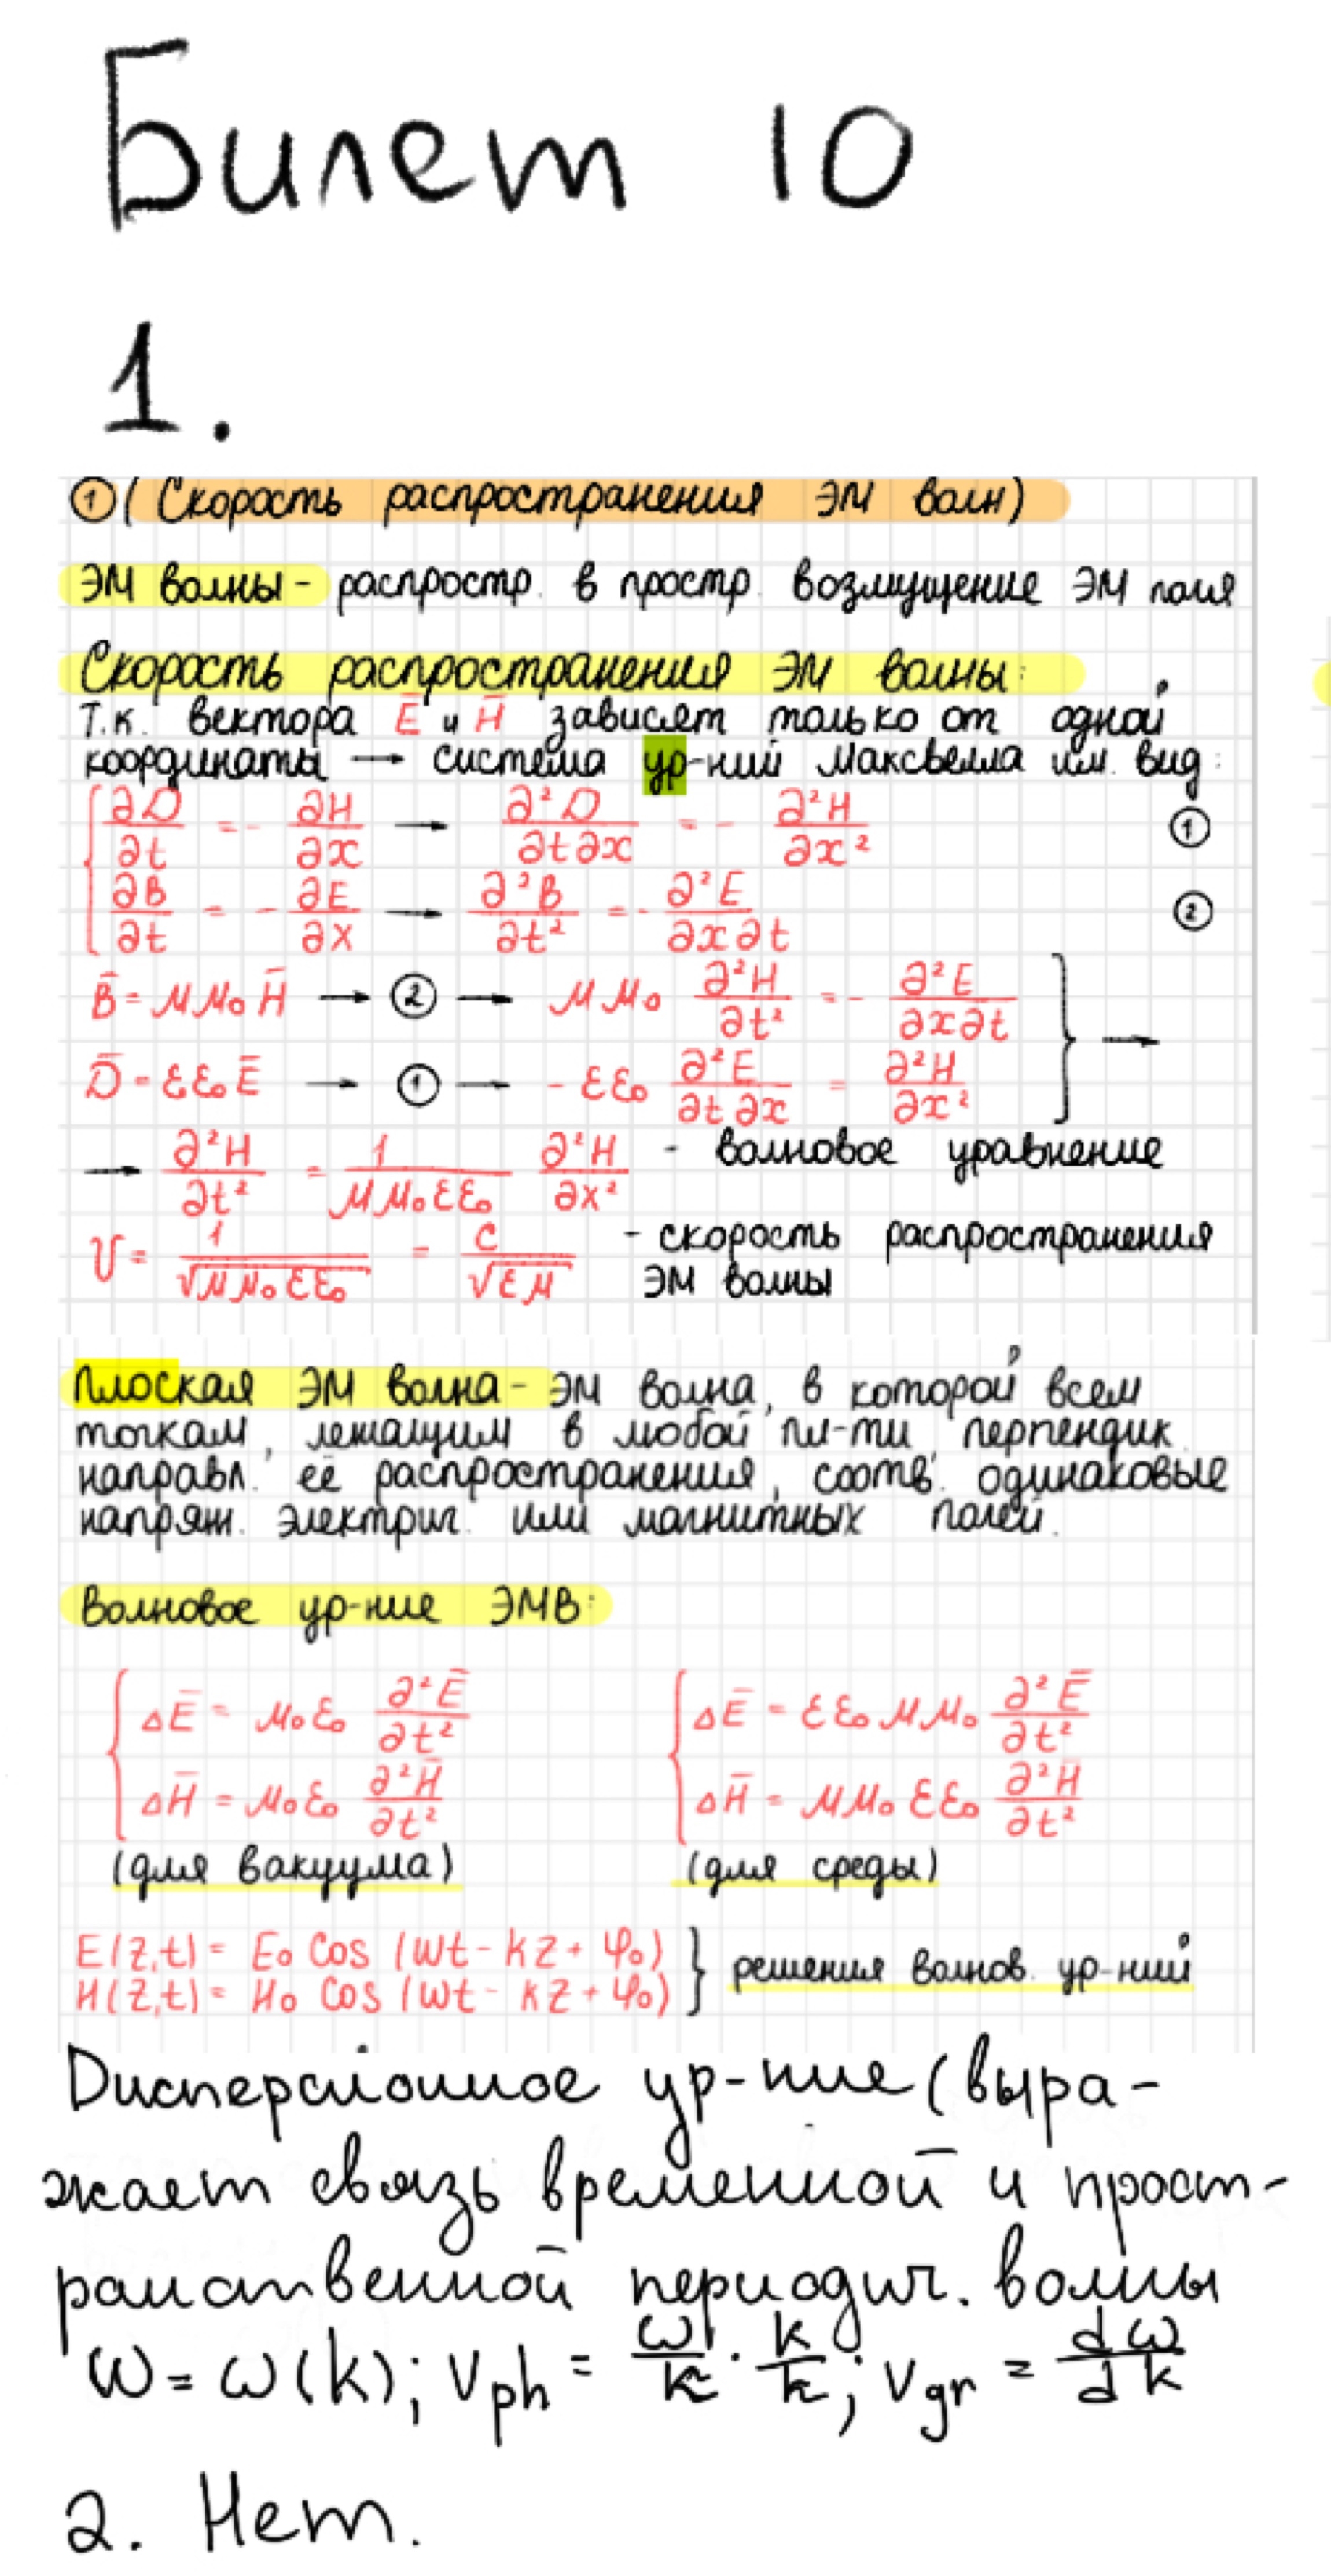 Билет 10
1.
① (Скорость распространения ЭМ волн)
ЭМ волны - распростр. в простр. возмущение ЭМ поля
Скорость распространения ЭМ волны:
Т.к. вектора E̅ и H̅ зависят только от одной
координаты → система ур-ний Максвелла им. вид:
∂D/∂t = - ∂H/∂x → ∂²D/∂t∂x = - ∂²H/∂x² ①
∂B/∂t = - ∂E/∂x → ∂²B/∂t² = - ∂²E/∂x∂t ②
B̅ = μμ₀H̅ → ② → μμ₀ ∂²H/∂t² = - ∂²E/∂x∂t
D̅ = εε₀E̅ → ① → - εε₀ ∂²E/∂t∂x = ∂²H/∂x² } →
→ ∂²H/∂t² = 1/μμ₀εε₀ ∂²H/∂x² - волновое уравнение
υ = 1/√μμ₀εε₀ = c/√εμ - скорость распространения
ЭМ волны
Плоская ЭМ волна - ЭМ волна, в которой всем
точкам, лежащим в любой пл-ти перпендик.
направл. её распространения, соотв. одинаковые
напряж. электрич. или магнитных полей.
Волновое ур-ние ЭМВ:
ΔE̅ = μ₀ε₀ ∂²E̅/∂t² ΔE̅ = εε₀μμ₀ ∂²E̅/∂t²
ΔH̅ = μ₀ε₀ ∂²H̅/∂t² ΔH̅ = μμ₀εε₀ ∂²H̅/∂t²
(для вакуума) (для среды)
E(z,t) = E₀ cos (ωt - kz + φ₀)
H(z,t) = H₀ cos (ωt - kz + φ₀) } решения волнов. ур-ний
Дисперсионное ур-ние (выра-
жает связь временной и прост-
ранственной периодич. волны
ω = ω(k); v_ph = ω/k · k/k; v_gr = dω/dk
2. Нет.